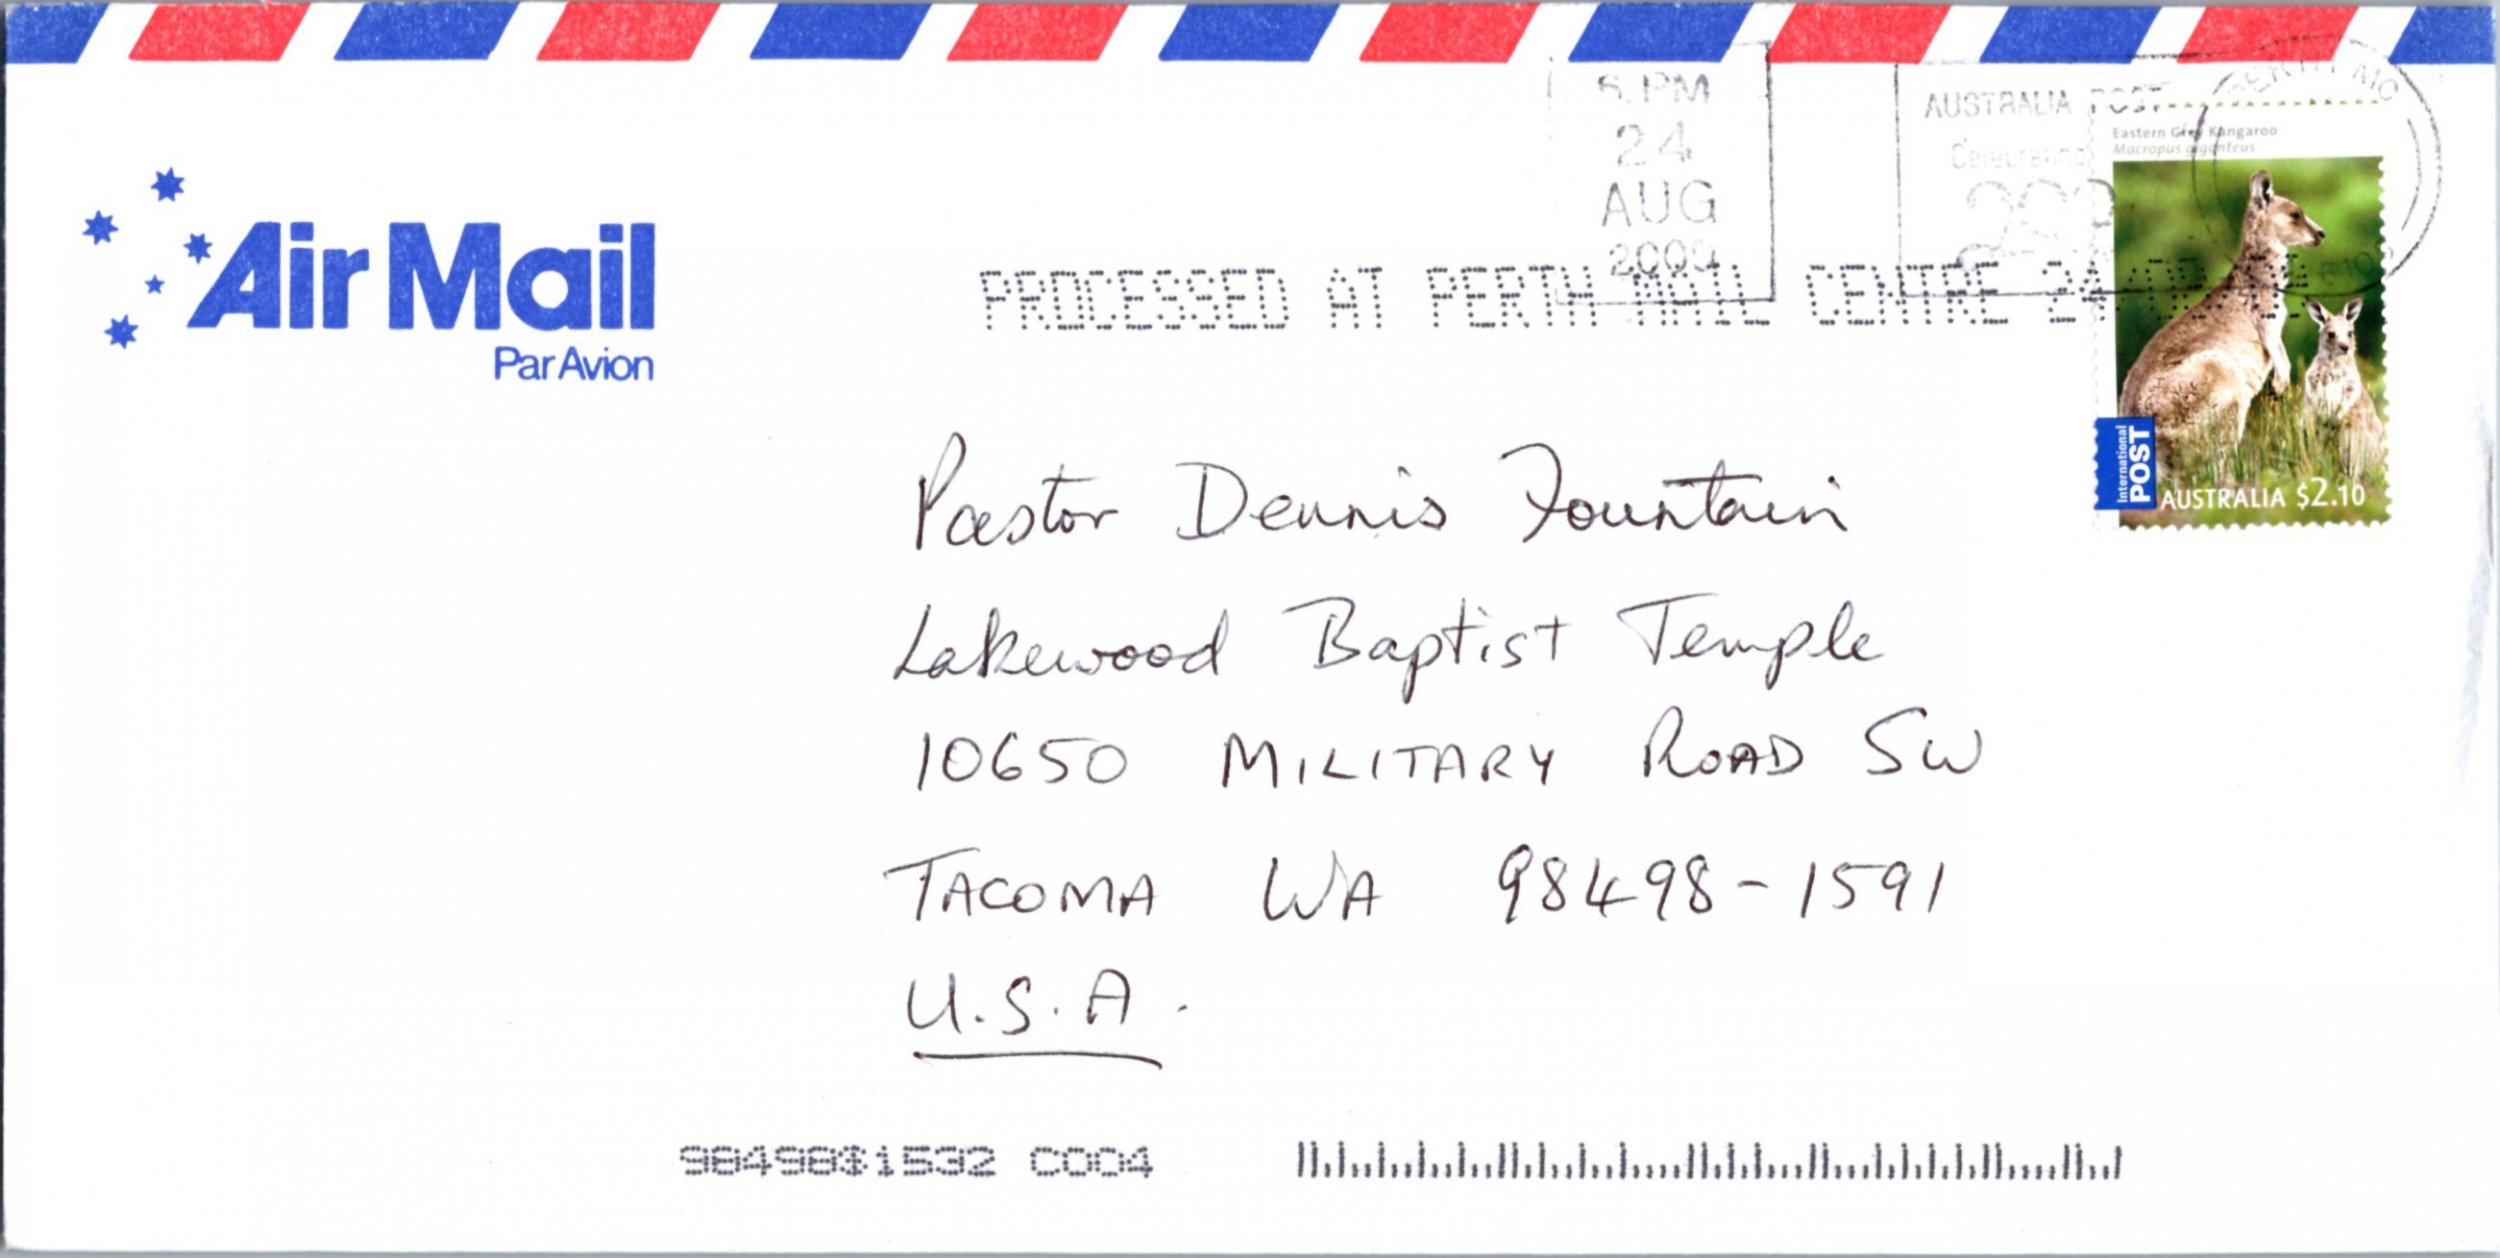 6 PM
24
AUG
2009
AUSTRALIA POST
Celebrating
200
PERTH MC
Eastern Grey Kangaroo
Macropus giganteus
Air Mail
Par Avion
PROCESSED AT PERTH MAIL CENTRE 24/08/09
International
POST
AUSTRALIA $2.10
Pastor Dennis Fountain
Lakewood Baptist Temple
10650 MILITARY ROAD SW
TACOMA WA 98498-1591
U.S.A.
98498$1532 C004